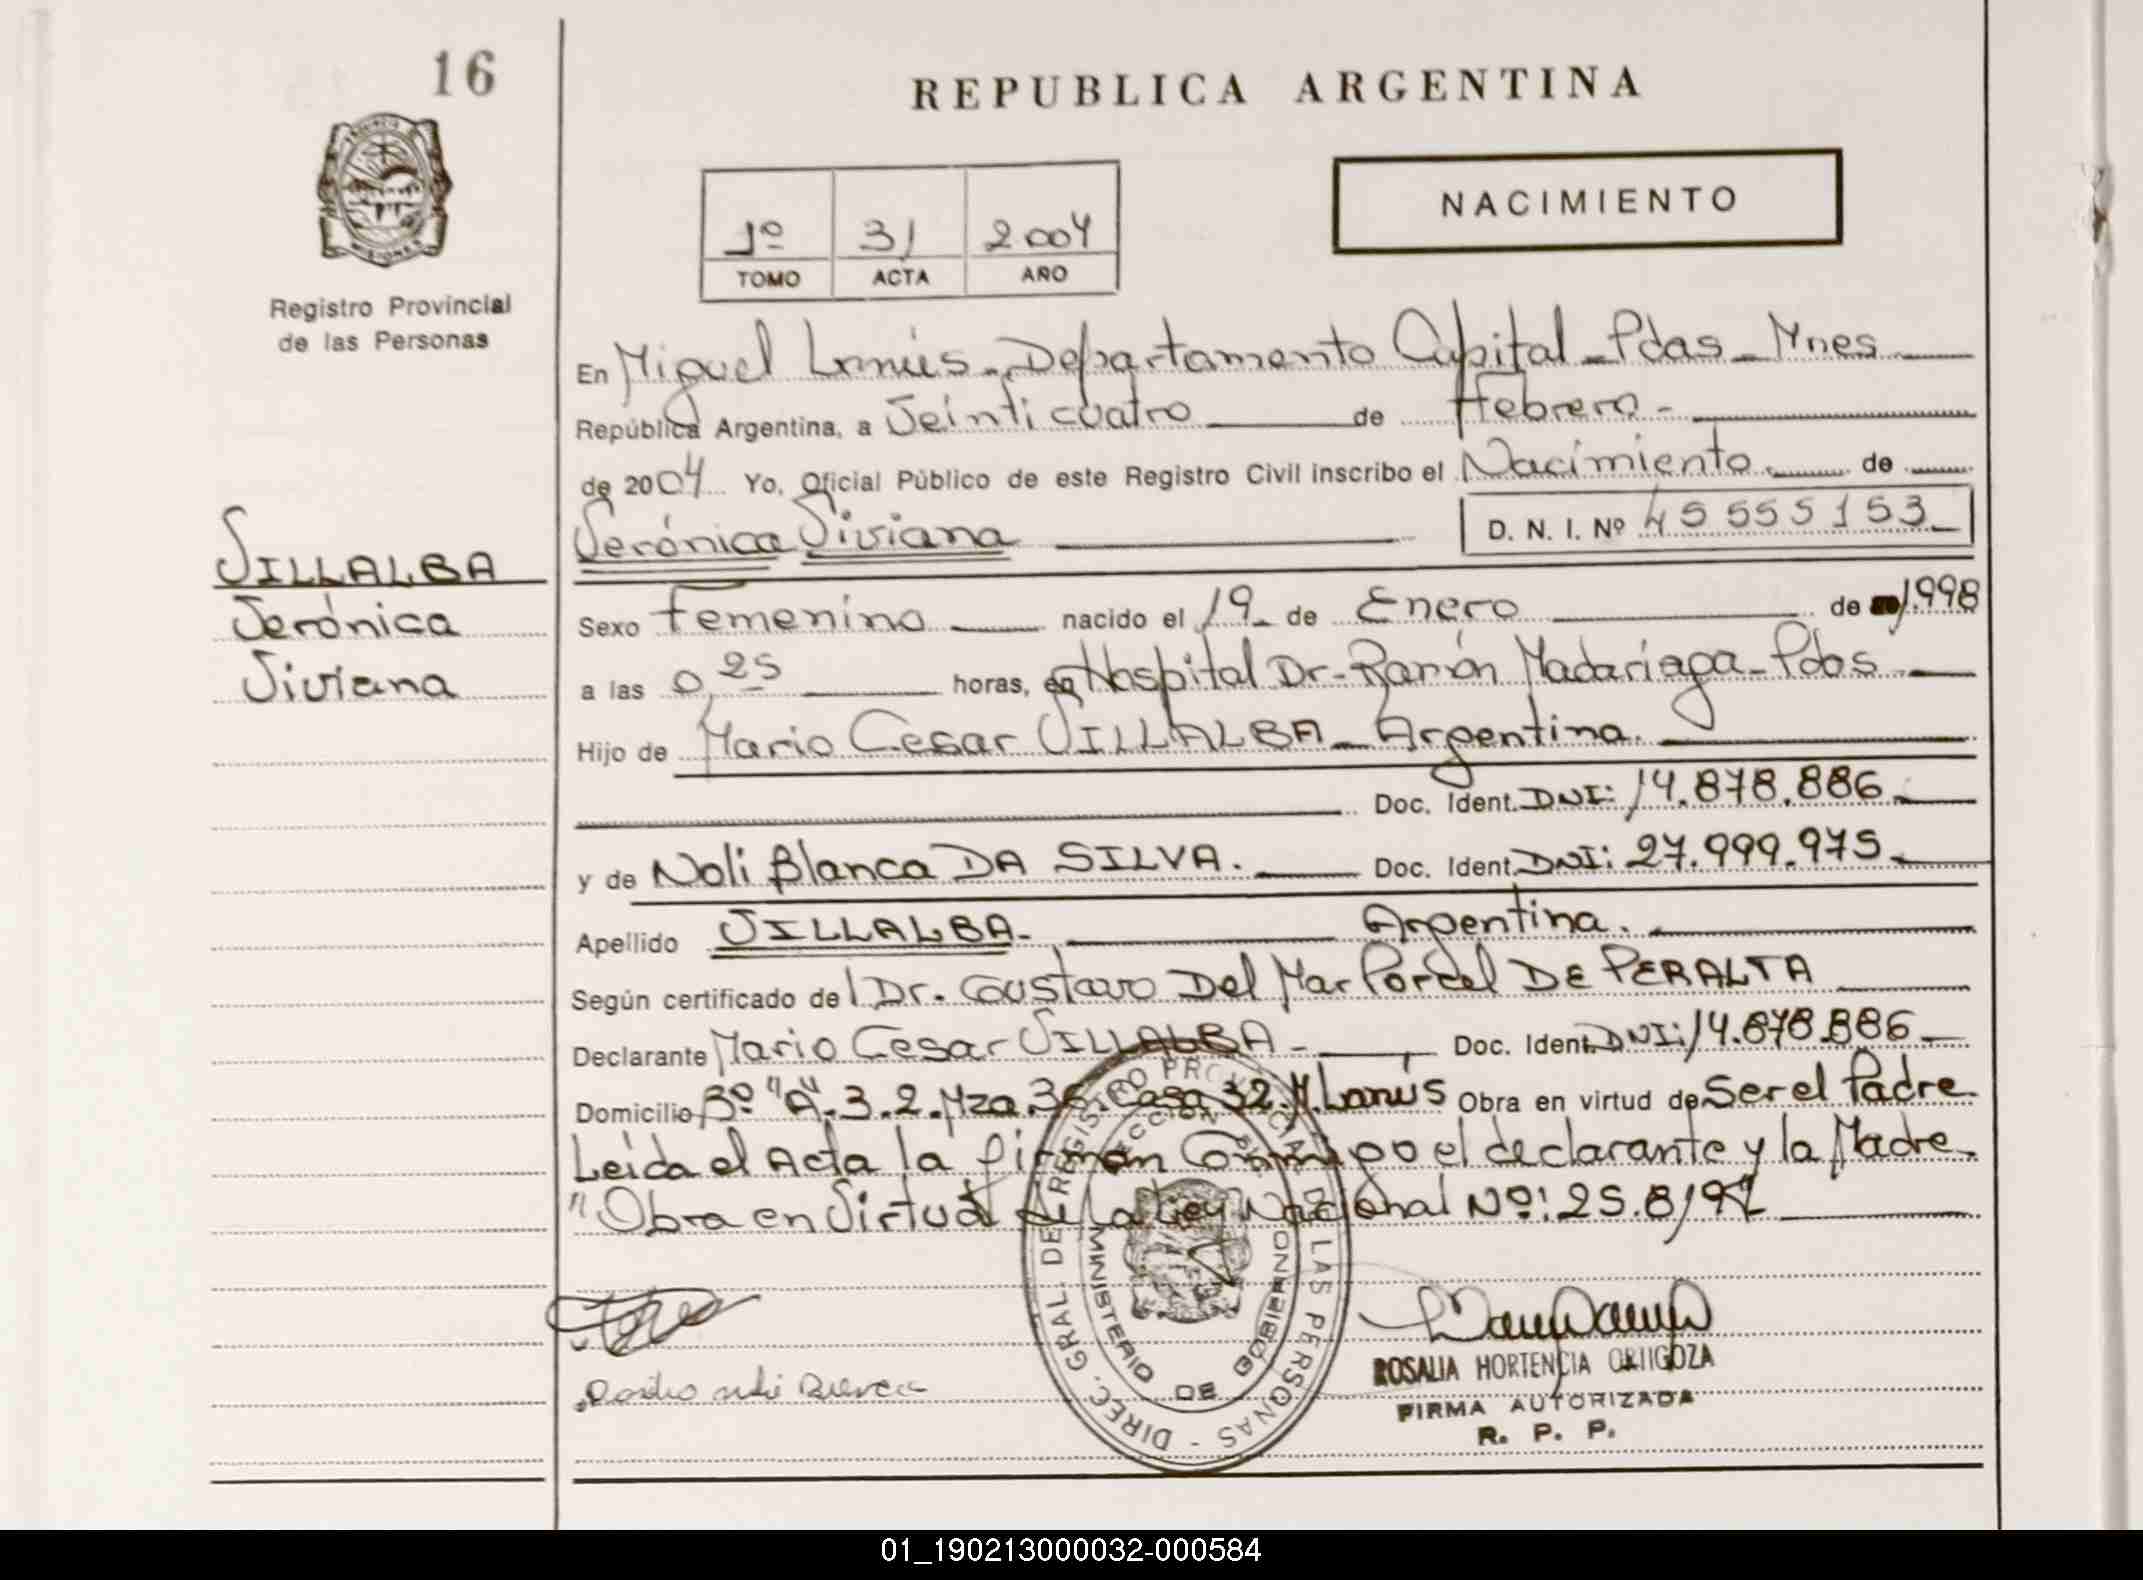 16
REPUBLICA ARGENTINA
NACIMIENTO
1º 31 2004
TOMO ACTA AÑO
Registro Provincial
de las Personas
En Miguel Lanús - Departamento Capital - Pdas - Mnes
República Argentina, a Veinticuatro de Febrero -
de 2004 Yo, Oficial Público de este Registro Civil inscribo el Nacimiento de
Verónica Viviana D. N. I. Nº 45 555 153
VILLALBA
Verónica
Viviana
Sexo Femenino nacido el 19 de Enero de 1.998
a las 0,25 horas, en Hospital Dr. Ramón Madariaga - Pdas
Hijo de Mario Cesar VILLALBA - Argentina.
Doc. Ident. DNI: 14.878.886
y de Noli Blanca DA SILVA. Doc. Ident. DNI: 27.999.975
Apellido VILLALBA - Argentina.
Según certificado del Dr. Gustavo Del Mar Porcel DE PERALTA
Declarante Mario Cesar VILLALBA - Doc. Ident. DNI: 14.878.886
Domicilio Bº "A".3.2.Mza.36.Casa 32.M.Lanús Obra en virtud de Ser el Padre
Leída el Acta la firman Conmigo el declarante y la Madre.
"Obra en Virtud de la Ley Nacional Nº: 25.819
DIREC. GRAL. DE REGISTRO PROVINCIAL DE LAS PERSONAS -
DIRECCION
MINISTERIO DE GOBIERNO
ROSALIA HORTENCIA ORTIGOZA
FIRMA AUTORIZADA
R. P. P.
01_190213000032-000584